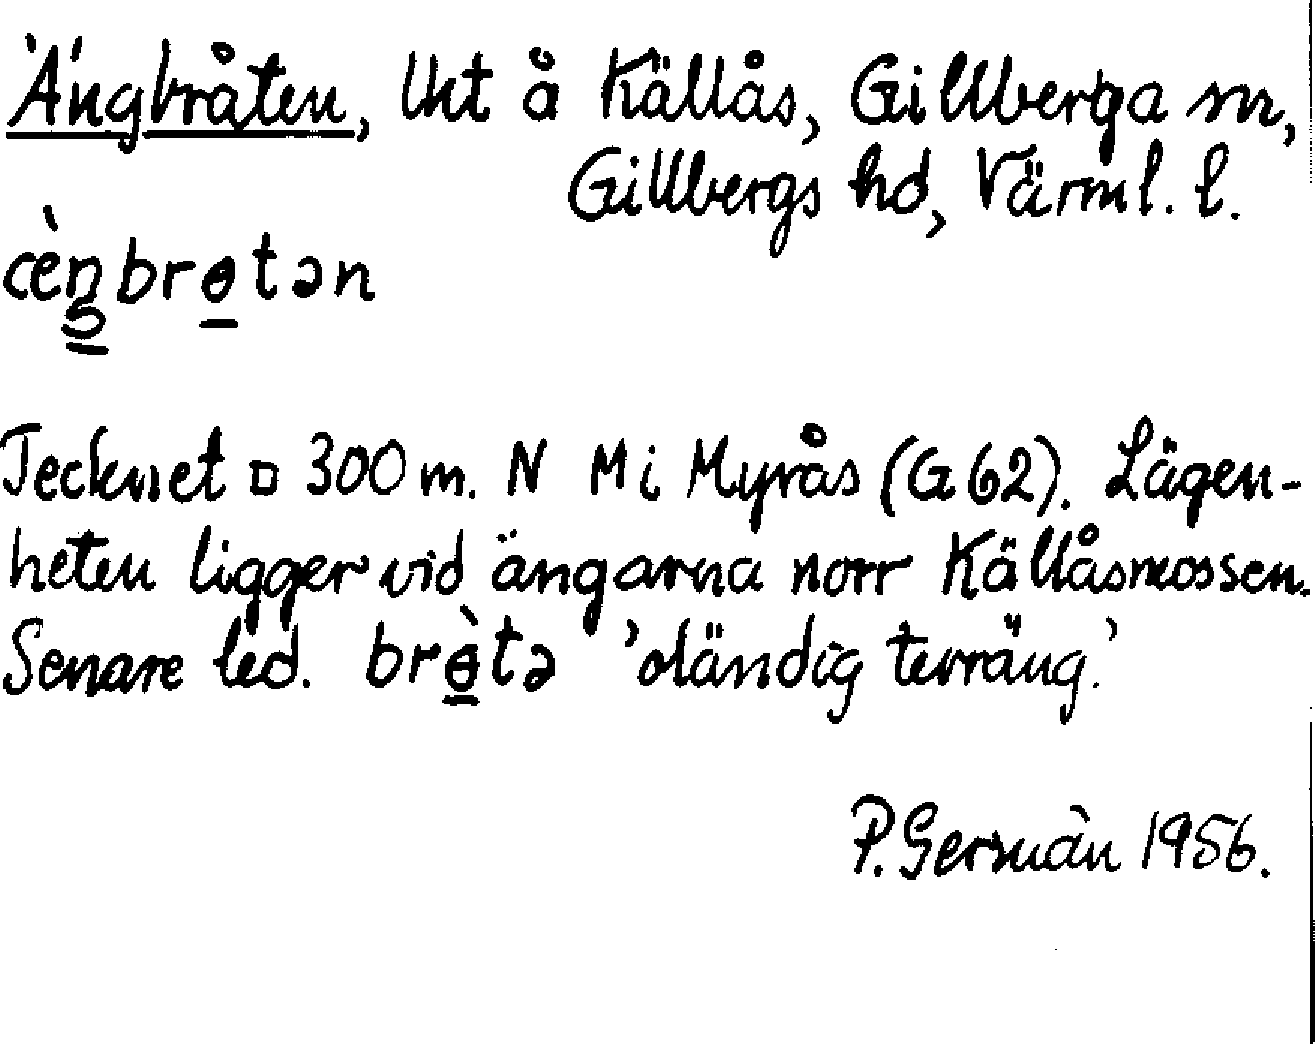 Ängbråten, lht å Källås, Gillberga sn,
Gillbergs hd, Värml. l.
ὰŋbrɵtən
Tecknet ¤ 300 m. N M i Myrås (G 62). Lägen-
heten ligger vid ängarna norr Källåsmossen.
Senare led. brɵ̀tə 'oländig terräng.'
P. Germàn 1956.